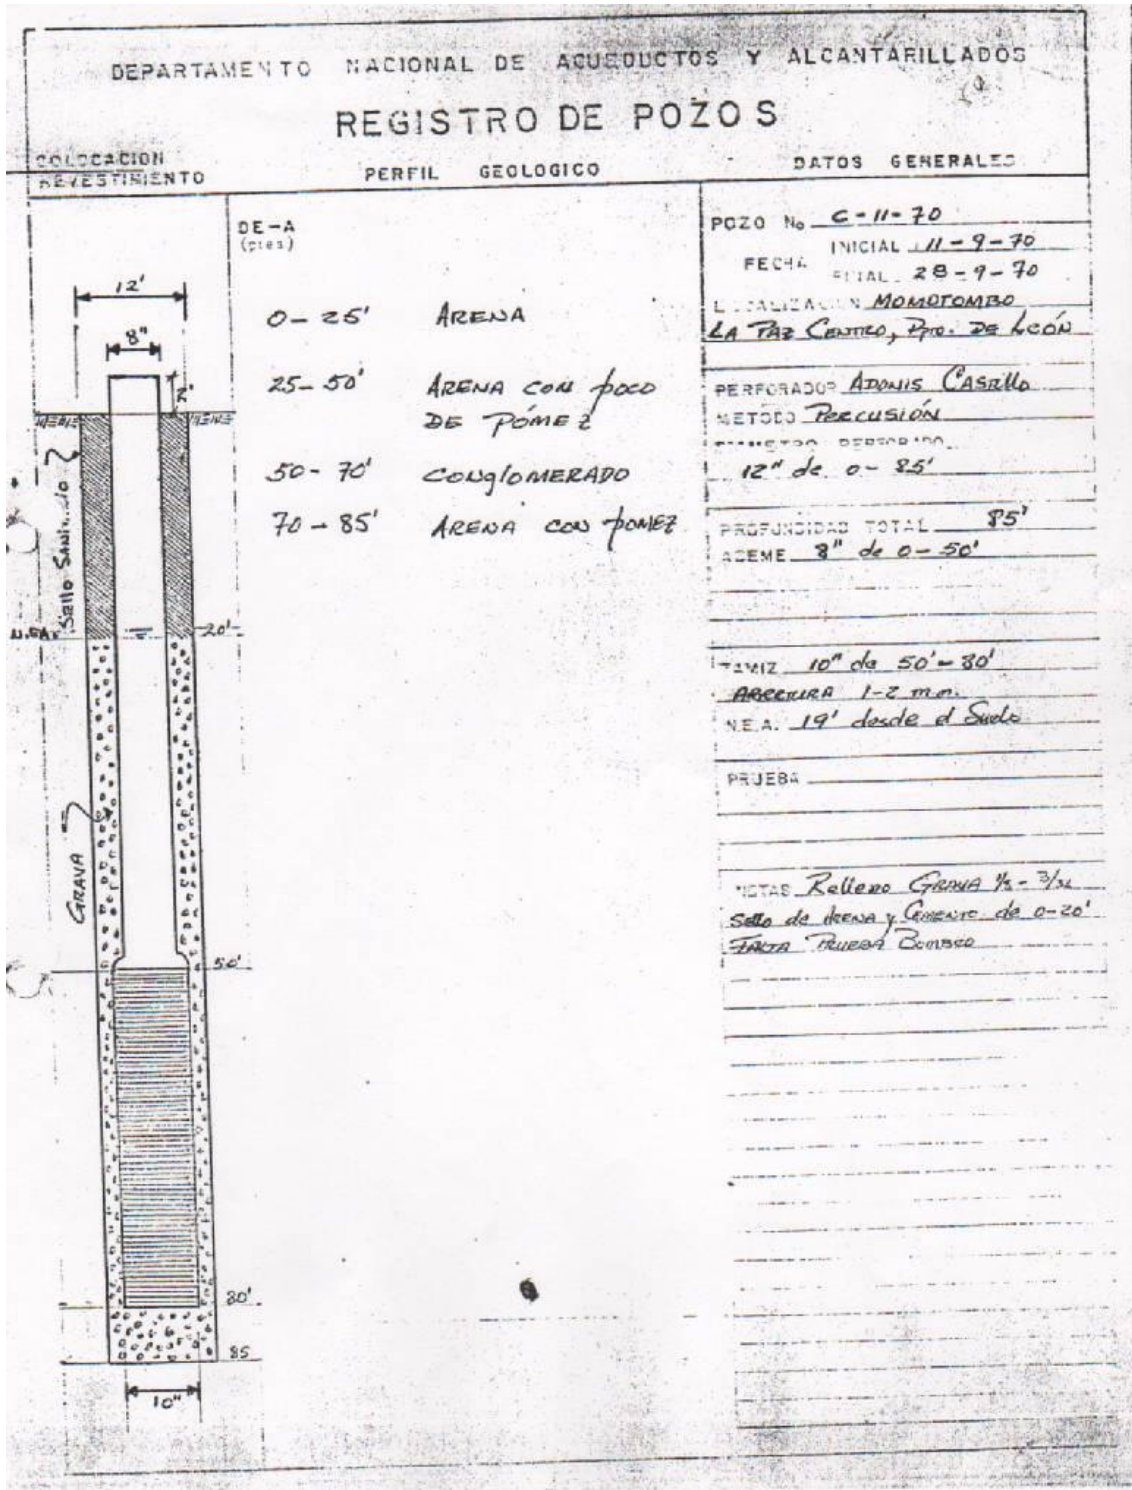 DEPARTAMENTO NACIONAL DE ACUEDUCTOS Y ALCANTARILLADOS
REGISTRO DE POZOS
COLOCACION
REVESTIMIENTO
PERFIL GEOLOGICO
DATOS GENERALES
12'
8"
2'
Sello Sanitario
N.E.A.
20'
GRAVA
50'
80'
85
10"
DE-A
(pies)
0-25' ARENA
25-50' ARENA CON poco
DE PÓMEZ
50-70' CONglOMERADO
70-85' ARENA CON POMEZ
POZO No C-11-70
FECHA INICIAL 11-9-70
FINAL 28-9-70
LOCALIZACION MOMOTOMBO
LA PAZ CENTRO, Dto. DE LEÓN
PERFORADOR ADONIS CASTILLO
METODO PERCUSIÓN
DIAMETRO PERFORADO
12" de 0-85'
PROFUNDIDAD TOTAL 85'
ADEME 8" de 0-50'
TAMIZ 10" de 50'-80'
ABERTURA 1-2 m.m.
N.E.A. 19' desde el Suelo
PRUEBA
NOTAS Relleno GRAVA
Sello de ARENA y CEMENTO de 0-20'
FALTA PRUEBA BOMBEO